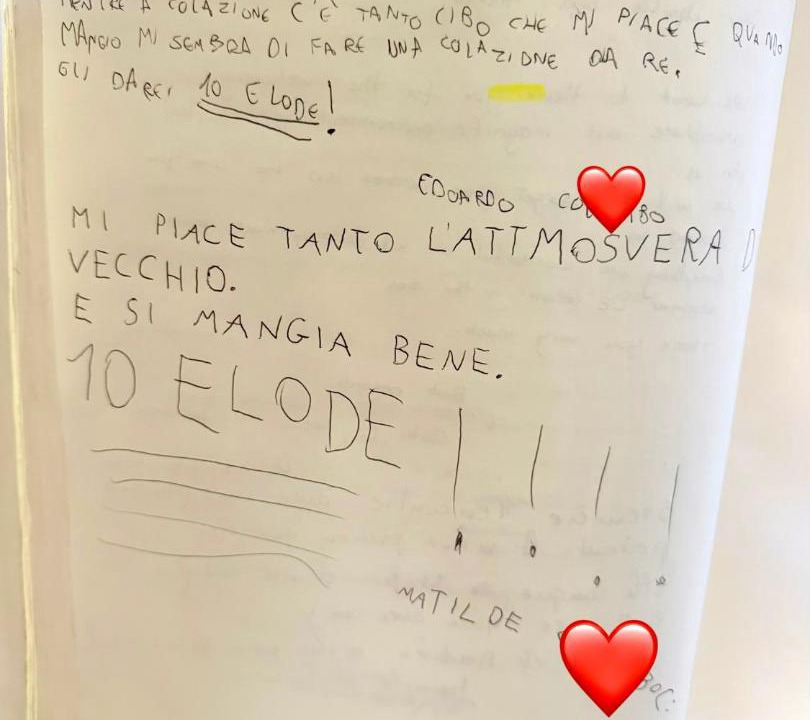 MENTRE A COLAZIONE C'È TANTO CIBO CHE MI PIACE E QUANDO
MANGIO MI SEMBRA DI FARE UNA COLAZIONE DA RE.
GLI DAREI 10 E LODE!
EDOARDO
MI PIACE TANTO L'ATTMOSVERA D
VECCHIO.
E SI MANGIA BENE.
10 E LODE!!!!
MATILDE